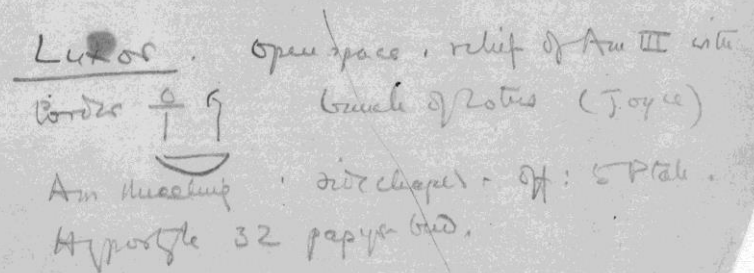 Luxor. open space. relief of Am III with
border bunch of Lotus (Joyce)
Am kneeling. side chapel. off: to Ptah.
Hypostyle 32 papyr. bud.